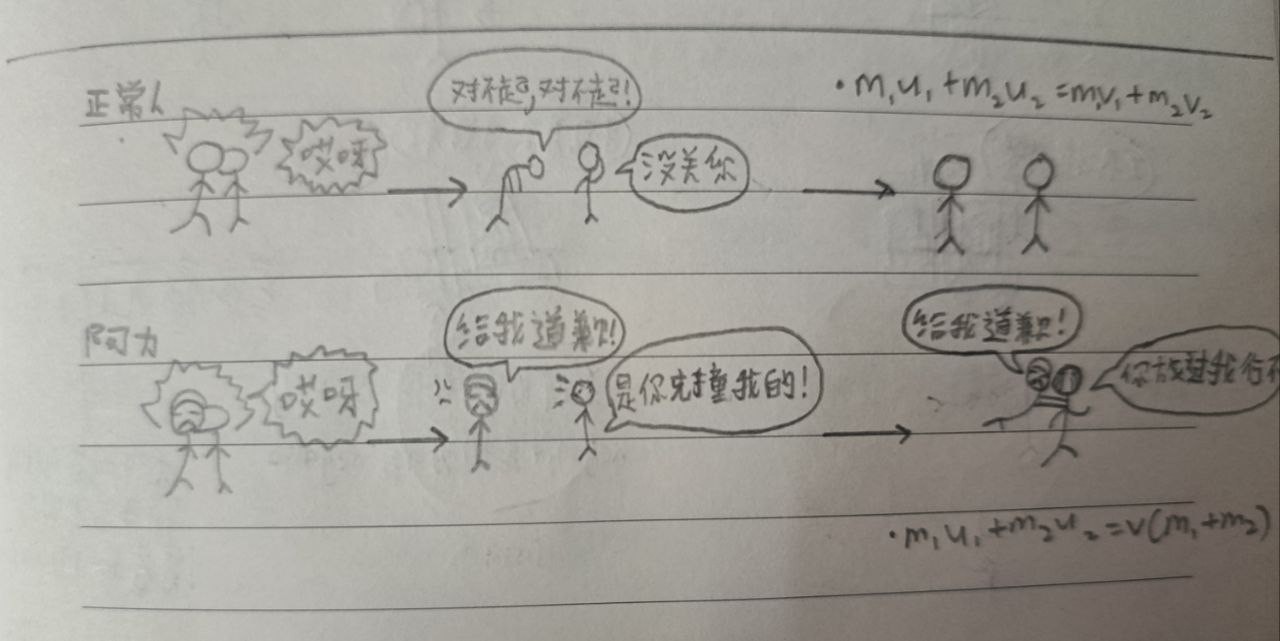 正常人
哎呀
对不起,对不起!
没关你
·m₁u₁+m₂u₂=m₁v₁+m₂v₂
阿力
哎呀
给我道歉!
是你先撞我的!
给我道歉!
你放过我行不
·m₁u₁+m₂u₂=v(m₁+m₂)